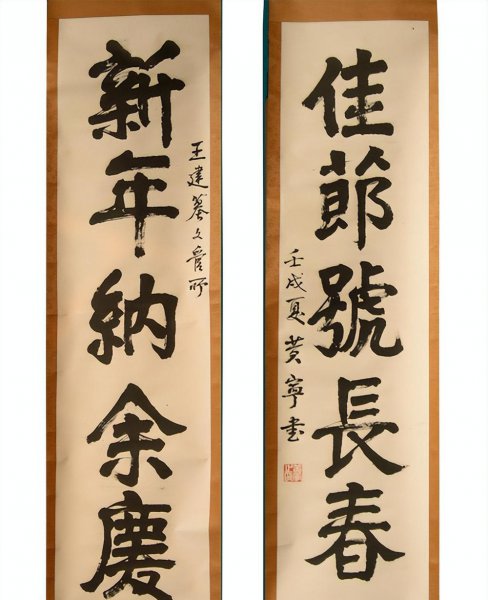 新年納余慶
王建墓文管所
佳莭號長春
壬戌夏黄寧書